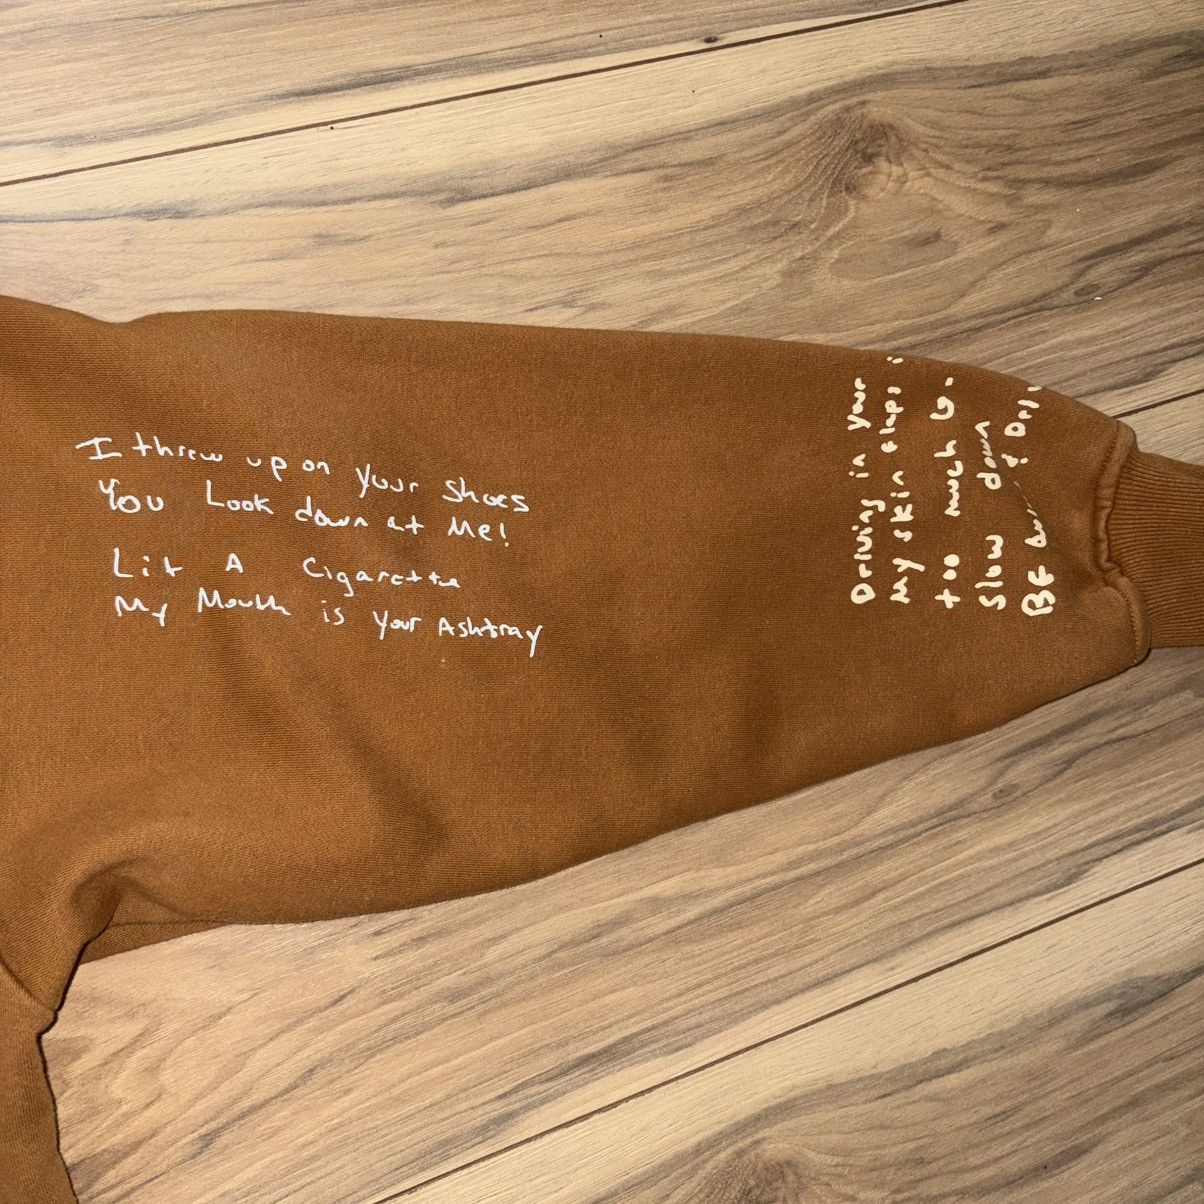 I threw up on your shoes
You Look down at Me!
Lit A Cigarette
My Mouth is your Ashtray
Driving in your
My skin flaps
too much
Slow down
BE